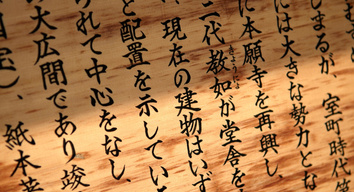 じまるが、室町時代
には大きな勢力とな
に本願寺を再興し、
二代教如が堂舎を
、現在の建物はいず
と配置を示してい
れて中心をなし、
大広間であり竣
国宝)、紙本著